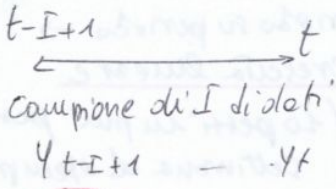 t-I+1 t
campione di I di dati.
Y t-I+1 Yt